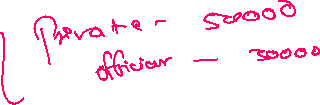 Private - 50000
official - 30000